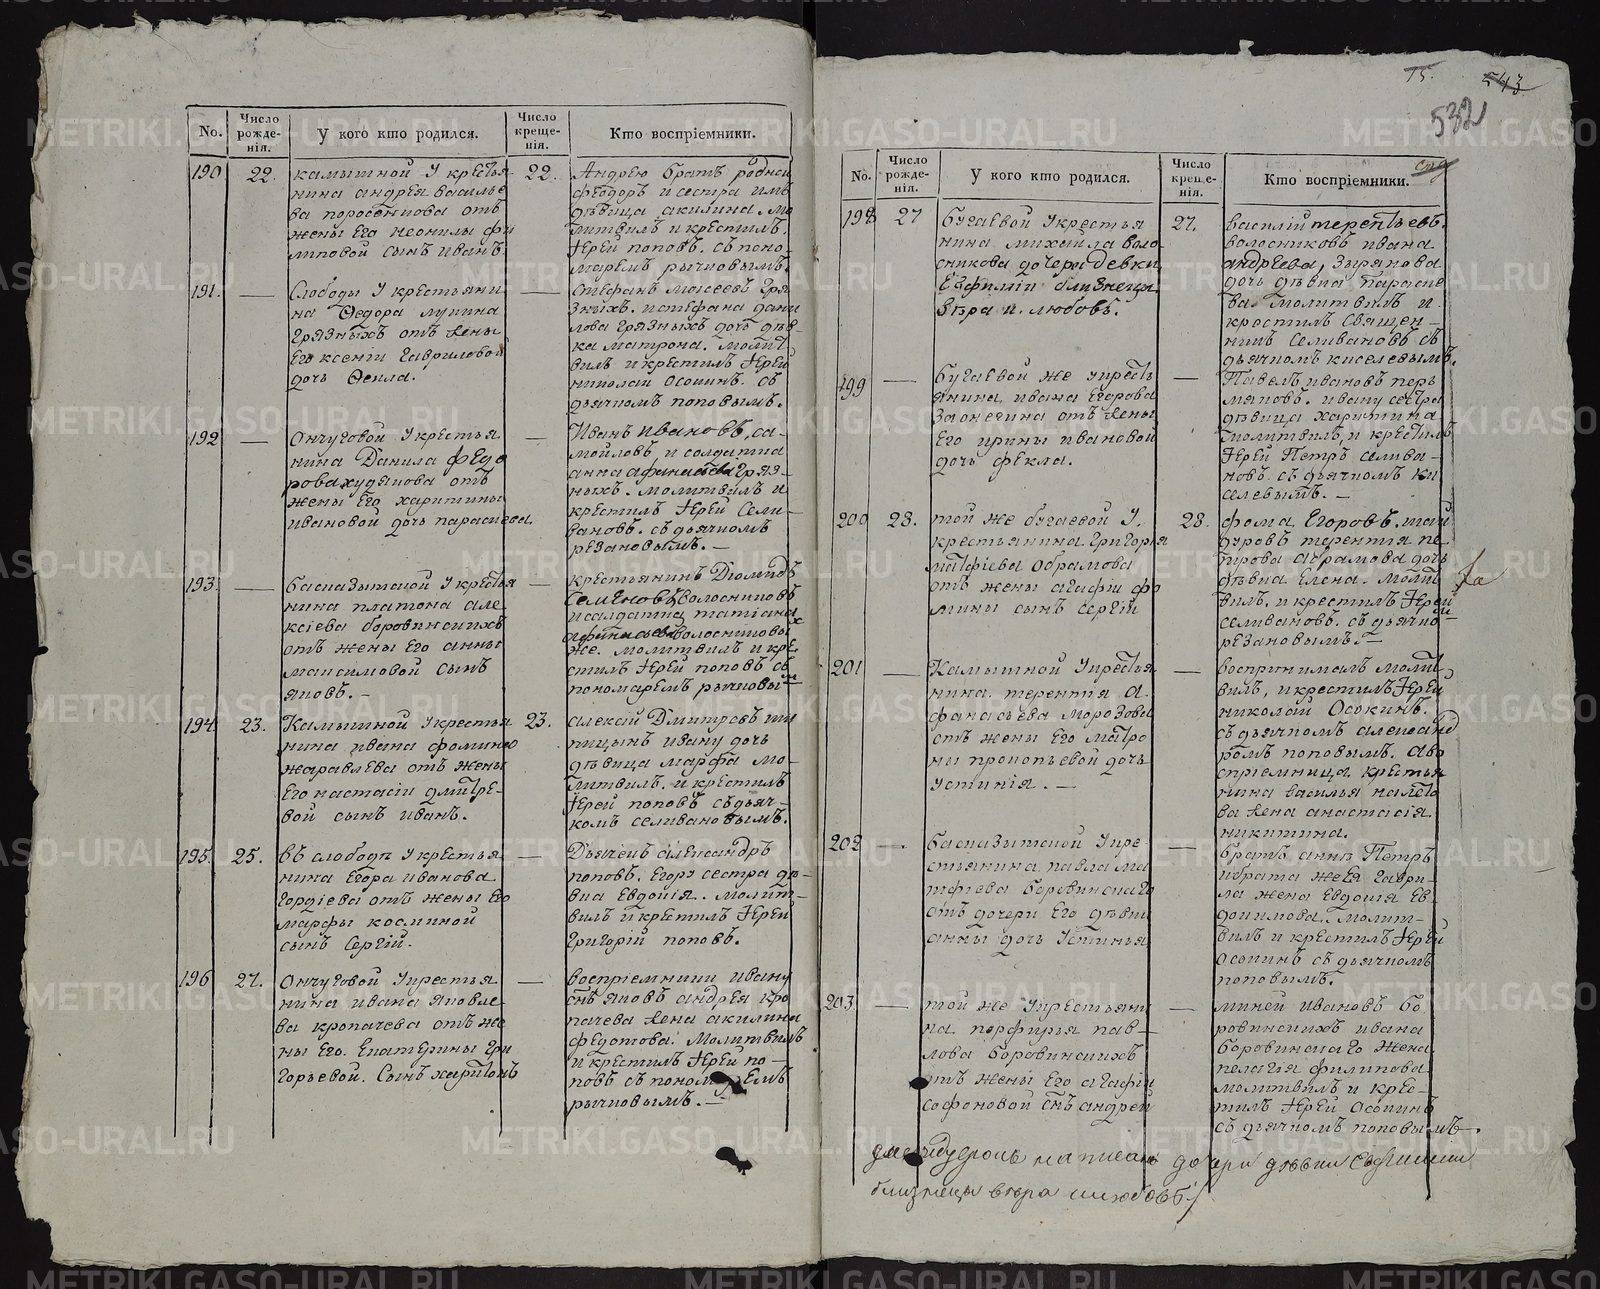 No.
Число рожде-нія.
У кого кто родился.
Число креще-нія.
Кто воспріемники.
190
22.
камышной У крестья-
нина андрея василье
ва поросенкова отъ
жены Его неонилы фи
липовой сынъ иванъ.
22.
Андрею братъ родной
феодоръ и сестра имъ
дѣвица акилина. мо
литвилъ и крестилъ.
Іерей поповъ. съ поно-
маремъ рычковымъ.
191.
—
Слободы У крестьяни
на Ѳедора лупина
грязныхъ отъ жены
Его ксеніи гавриловой
дочь Ѳекла.
—
Стефанъ моисеевъ гря
зныхъ. истефана дани
лова грязныхъ дочь дѣв-
ка матрона. молит
вилъ и крестилъ Іерей
николаи Осокинъ. съ
дьячкомъ поповымъ.
192
—
Ончуговой У крестья
нина Данила федо
рова худякова отъ
жены Его харитины
ивановой дочь параскева.
—
Иванъ ивановъ, са-
мойловъ и солдатка
анна афинасьева гряз-
ныхъ. молитвилъ и
крестилъ Іерей Сели-
вановъ. съ дьячкомъ
рѣзановымъ. —
193.
—
басказыкской У крестья
нина платона але
ксіева боровинскихъ
отъ жены Его анны
максимовой сынъ
яковъ. —
—
крестьянинъ Діомидъ
Семеновъ волосниковъ
и солдатка татіана
афинасьева волосникова
же. молитвилъ и кре-
стилъ Іерей поповъ съ
пономаремъ рычковымъ
194
23.
Камышной У крестья
нина ивана фомина
жаравлева отъ жены
Его настасіи дмитре-
вой сынъ иванъ.
23.
алексій Дмитревъ ши
пицынъ ивану дочь
дѣвица марфа мо-
литвилъ. и крестилъ
Іерей поповъ съ дьяч-
комъ селивановымъ.
195.
25.
въ слободѣ У крестья
нина Егора иванова
гордіева отъ жены Его
марфы косминой
сынъ Сергій.
—
Дьячекъ александръ
поповъ. Егору сестра дѣ-
вка Евдокія. молит-
вилъ и крестилъ Іерей
григорій поповъ.
196
27.
Ончуговой У крестья
нина ивана яковле-
ва кропачева отъ же
ны Его. Екатерины гри
горьевой. Сынъ харитонъ
—
воспріемники ивану
снъ яковъ андрея кро
пачева жена акилина
федотова. молитвилъ
и крестилъ Іерей по-
повъ съ пономаремъ
рычковымъ. —
15.
543
532
No.
Число рожде-нія.
У кого кто родился.
Число креще-нія.
Кто воспріемники.
198
27
бугаевой У крестья
нина михайла воло
сникова дочери девки
Евфиміи близнецы
Вѣра и любовь.
27.
василій терентьевъ
волосниковъ ивана
андреева, зырянова
дочь дѣвка параске
ва молитвилъ и
крестилъ Священ-
никъ Селивановъ съ
дьячкомъ киселевымъ.
199
—
бугаевой же У кресть
янина ивана Егорова
Заонегина отъ жены
Его ирины ивановой
дочь фекла.
—
Павелъ ивановъ перь
мяковъ. ивану сестра
дѣвица харитина
молитвилъ, и крестилъ
Іерей Петръ селива-
новъ. съ дьячкомъ ки
селевымъ. —
200
28.
той же бугаевой У.
крестьянина. григорія
матфіева Обрамова
отъ жены агафіи фо
мины сынъ Сергій
28.
фома Егоровъ.
терентія пе-
трова абрамова дочь
дѣвка Елена. Молит
вилъ. и крестилъ Іерей
селивановъ. съ дьячко-
рѣзановымъ. —
201
—
Камышной У крестья
нина. терентія а.
фанасьева морозова
отъ жены Его матро
ны прокопьевой дочь
Устинія. —
—
воспринималъ молит
вилъ, и крестилъ Іерей
николай Осокинъ.
съ дьячкомъ александ
ромъ поповымъ. а во
спріемница крестья
нина василья
ва жена анастасія
никитина.
202
—
басказыкской У кре-
стьянина павла ма
тфіева боровинскаго
отъ дочери Его дѣвки
анны дочь Устинья
—
братъ анны Петръ
ибрата же Ея гаври-
ла жена Евдокія Ев
докимова. молит-
вилъ и крестилъ Іерей
Осокинъ съ дьячкомъ
поповымъ.
203
—
той же У крестьяни
на порфирья пав-
лова боровинскихъ
отъ жены Его агафіи
софоновой снъ андрей
—
миней ивановъ бо
ровинскихъ ивана
боровинскаго жена
пелагія филипова
молитвилъ и крес-
тилъ Іерей Осокинъ
съ дьячкомъ поповымъ.
написано дочери дѣвки Евфиміи
близнецы вѣра и любовь